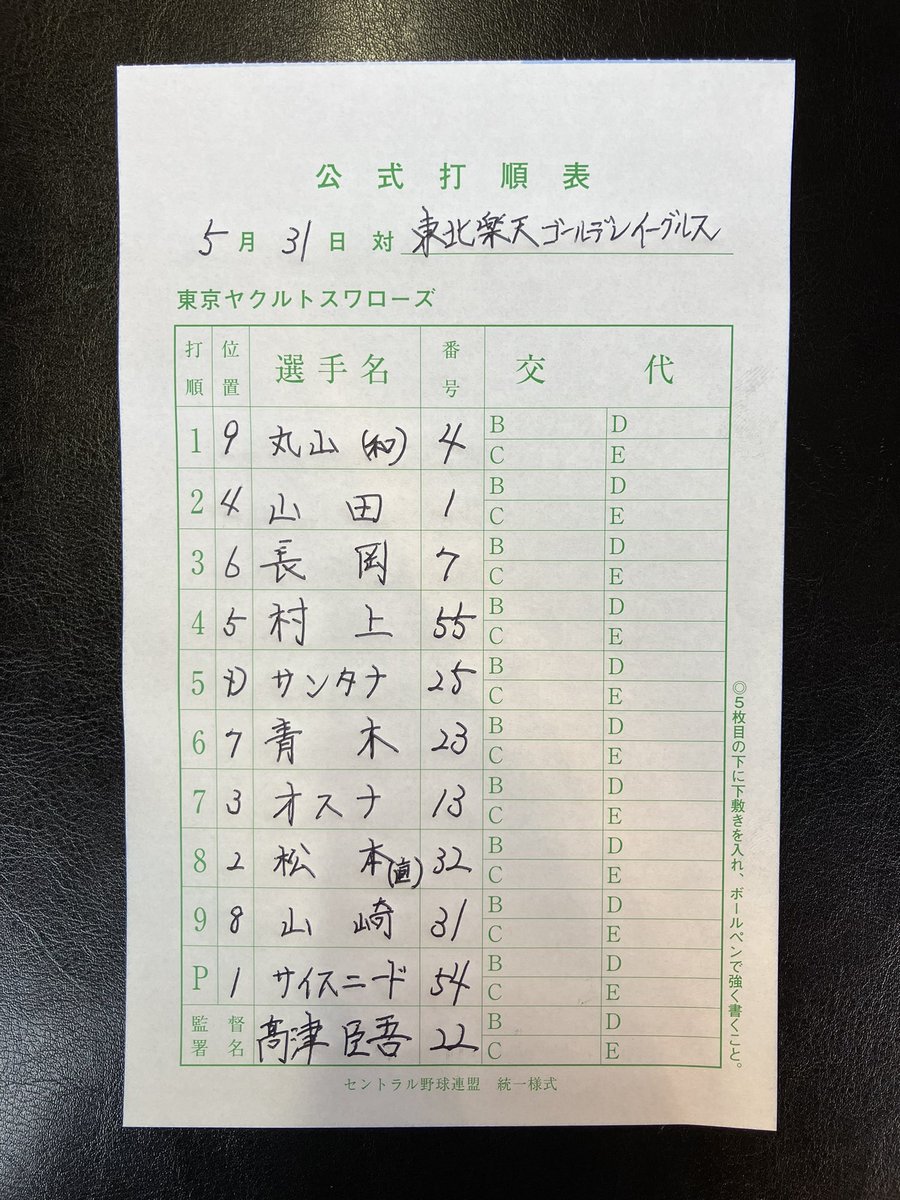 公式打順表
5月31日 対 東北楽天ゴールデンイーグルス
東京ヤクルトスワローズ
打順 位置 選手名 番号 交代
1 9 丸山(和) 4 B D C E
2 4 山田 1 B D C E
3 6 長岡 7 B D C E
4 5 村上 55 B D C E
5 D サンタナ 25 B D C E
6 7 青木 23 B D C E
7 3 オスナ 13 B D C E
8 2 松本(直) 32 B D C E
9 8 山崎 31 B D C E
P 1 サイスニード 54 B D C E
監督署名 髙津臣吾 22 B D C E
セントラル野球連盟 統一様式
◎5枚目の下に下敷きを入れ、ボールペンで強く書くこと。